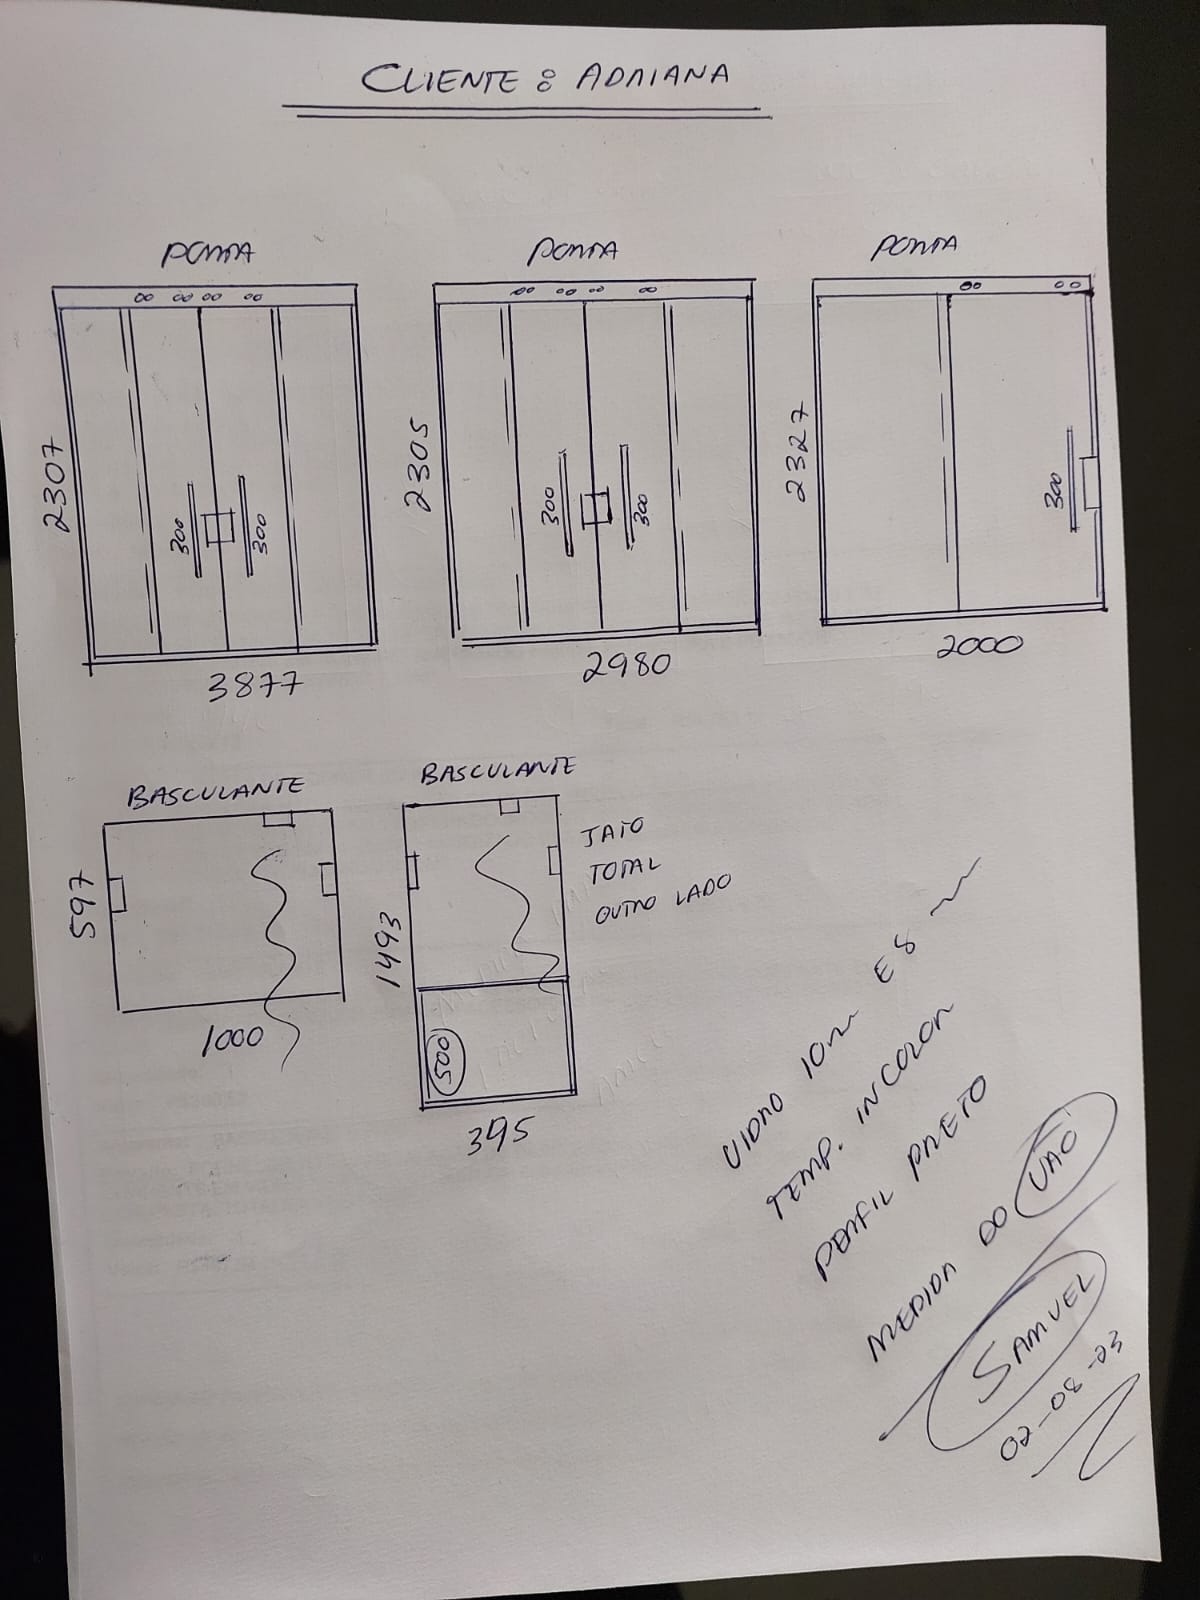 CLIENTE : ADRIANA
PORTA
2307
300
300
3877
PORTA
2305
300
300
2980
PORTA
2327
300
2000
BASCULANTE
597
1000
BASCULANTE
1493
500
395
JATO
TOTAL
OUTRO LADO
VIDRO 10m E 8 m
TEMP. INCOLOR
PERFIL PRETO
MEDIDA DO VÃO
SAMUEL
02-08-23